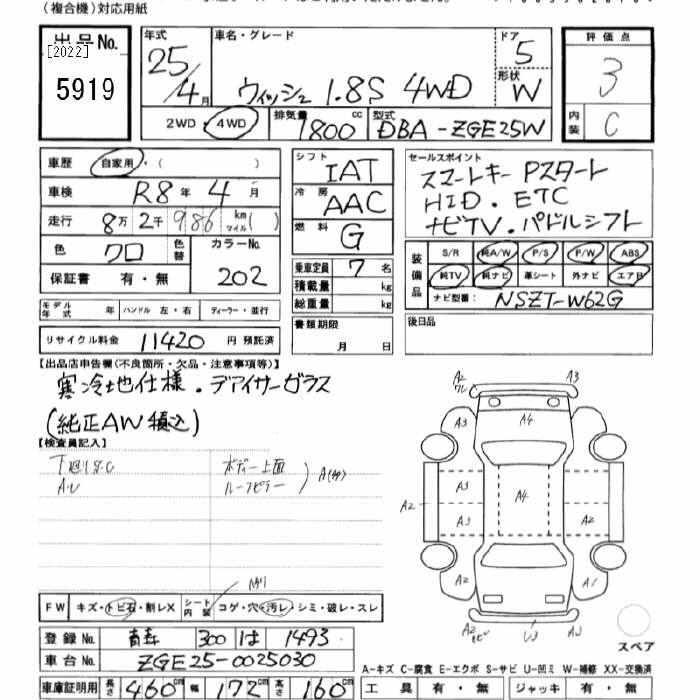 (複合機)対応用紙
出品No. [2022] 5919
年式 25/4月
車名・グレード ウィッシュ 1.8S 4WD
ドア 5 形状 W
評価点 3
内装 C
2WD・4WD 排気量 1800cc 型式 DBA-ZGE25W
車歴 自家用・( )
車検 R8年4月
走行 8万2千986km マイル( )
色 クロ 色替 カラーNo. 202
保証書 有・無
モデル年式 年 ハンドル 左・右 ディーラー・並行
リサイクル料金 11420円 預託済
シフト IAT
冷房 AAC
燃料 G
乗車定員 7名
積載量 kg
総重量 kg
書類期限 月 日
セールスポイント
スマートキー Pスタート
HID. ETC
ナビTV. パドルシフト
装備品 S/R 純A/W P/S P/W ABS
純TV 純ナビ 革シート 外ナビ エアB
ナビ型番: NSZT-W62G
後日品
【出品店申告欄(不良箇所・欠品・注意事項等)】
寒冷地仕様.デアイサーガラス
(純正AW積込)
【検査員記入】
下廻りS.C ボデー上面
A.U ルーフピラー
FW キズ・トビ石・割レX シート内装 コゲ・穴・汚レ・シミ・破レ・スレ
登録No. 青森 300 は 1493
車台No. ZGE25-0025030
車庫証明用 長さ460cm 幅172cm 高さ160cm
A2 A3
A3 A4
A3 A3 A4 A2 A2
A2 A1
A2 U3 A3
スペア
A-キズ C-腐食 E-エクボ S-サビ U-凹ミ W-補修 XX-交換済
工具 有・無 ジャッキ 有・無